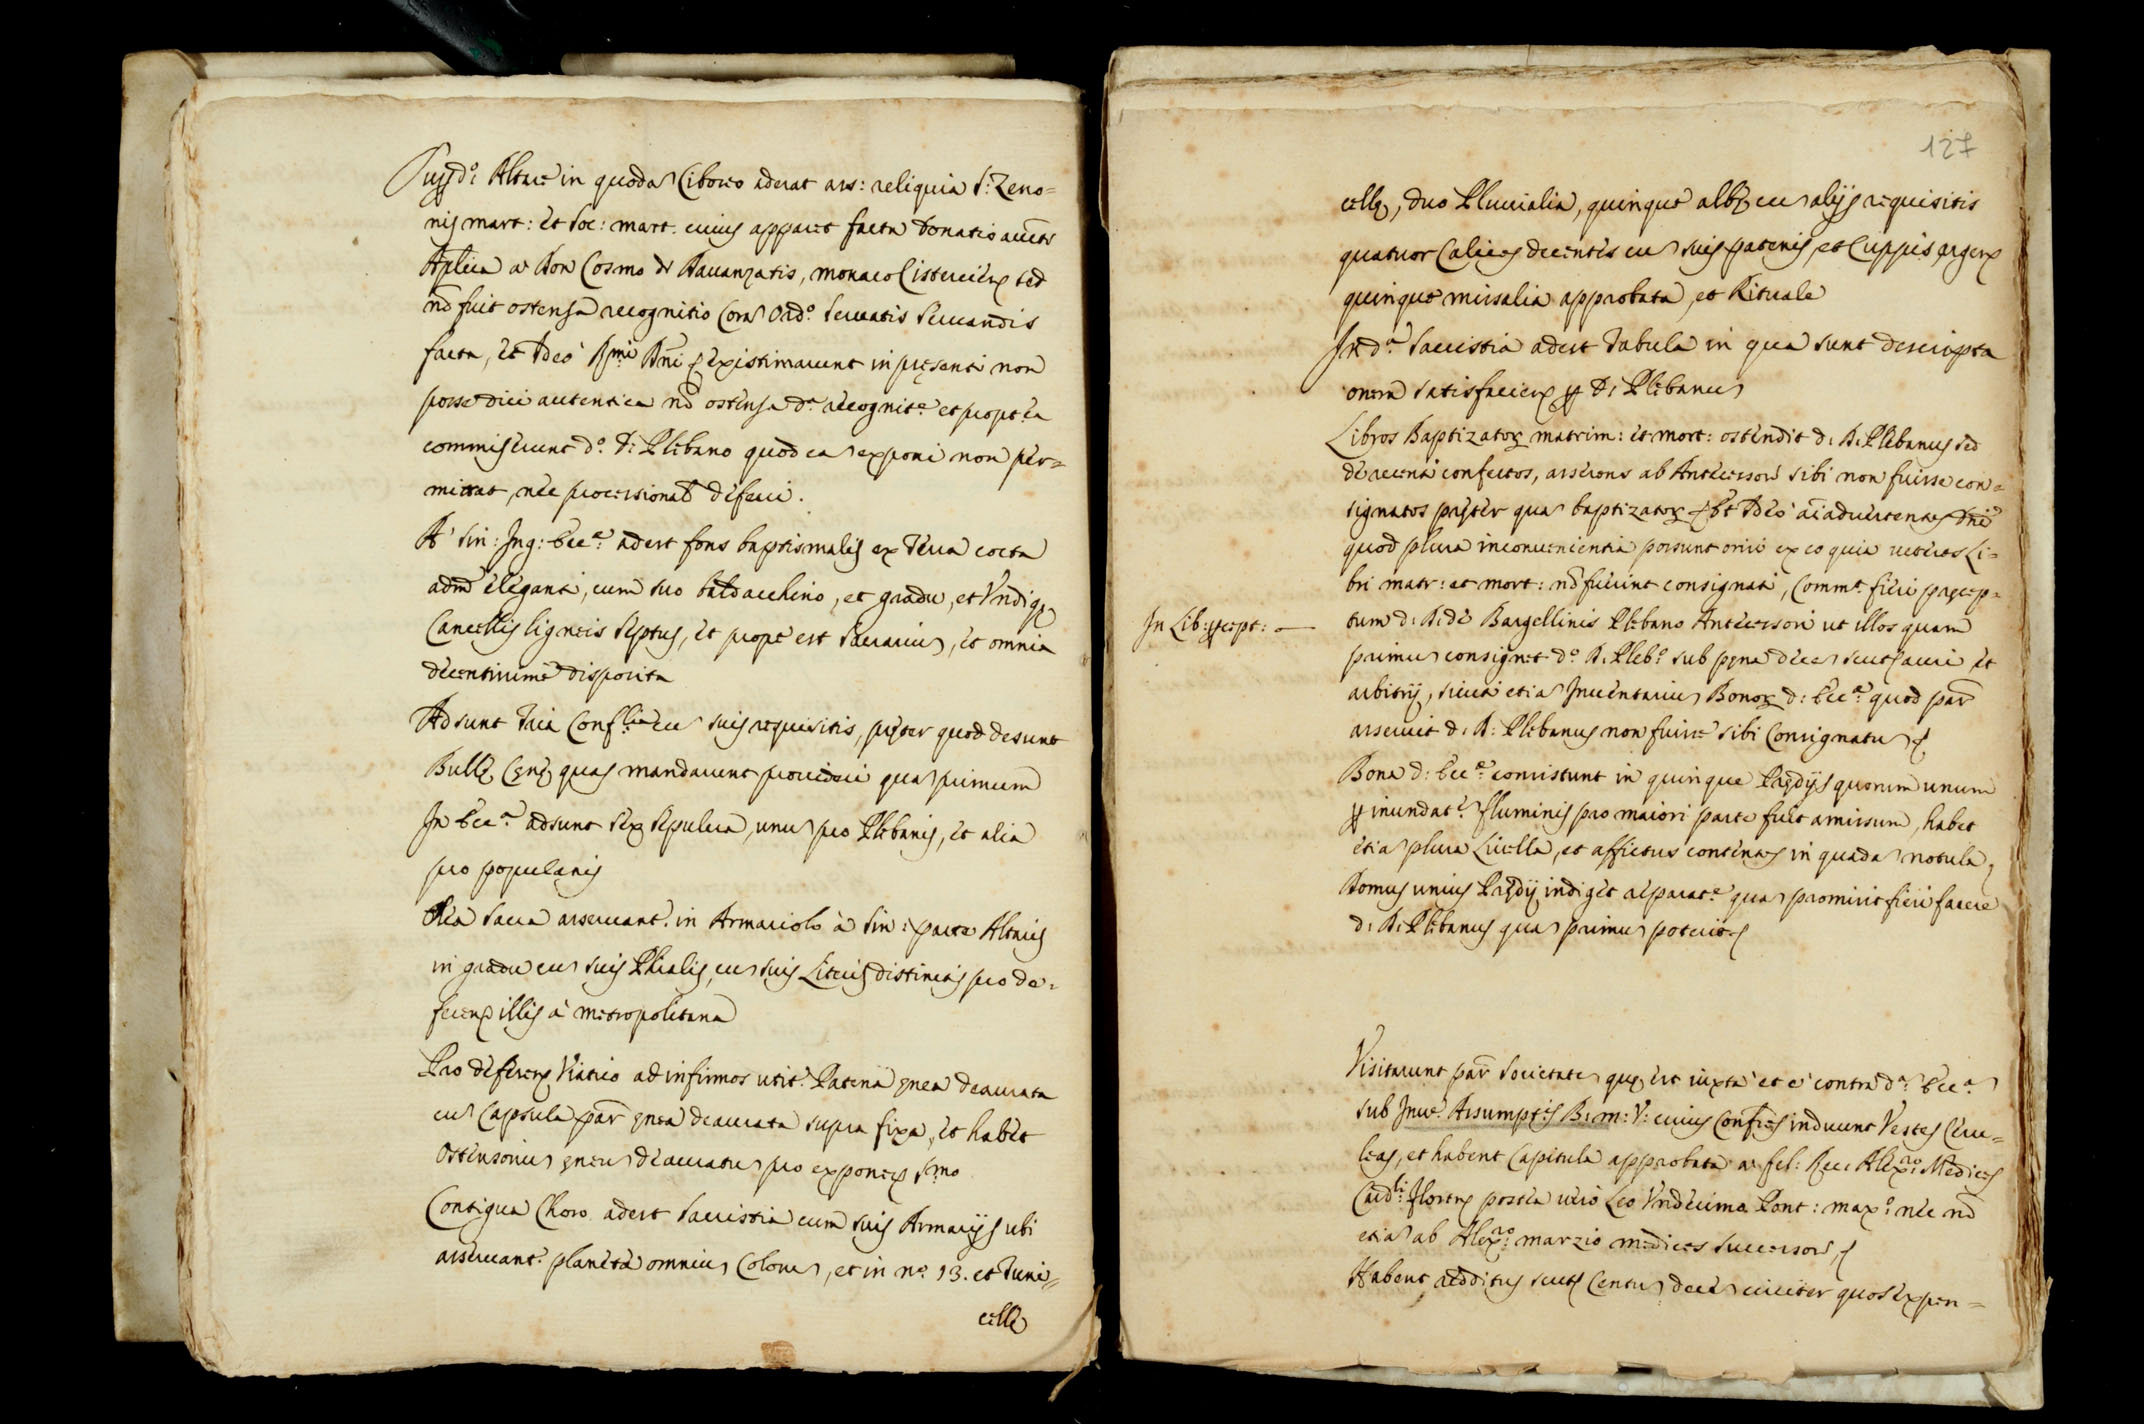 Supd.º Altare in quoda Ciborio aderat ars: reliquia S: Zeno=
nis mart: et Soc: mart. cuius apparet facta donatio auctte
Aplica a Don Cosmo de Dauanzatis, monaco Cisterciens sed
nō fuit ostensa recognitio Cora Ordº seruatis seruandis
facta, et Ideo Rmi Dni existimauerunt in presenti non
posse dici autentica nō ostensa d.ª recognit.e et propt.ea
commiserunt d.º D: Plebano quod ea exponi non per=
mittat, nec processionalr deferri.
A' sin: Ing: Ecc.ª adest fons baptismalis ex Terra cocta
admd eleganti, cum suo baldacchino, et gradu, et Undiq
Cancellis ligneis septus, et prope est Sacrariu, et omnia
decentissime disposita
Adsunt tria Conf.lia cu suis requisitis, preter quod desunt
Bulle Cene quas mandauerunt prouideri qua primum
In Ecc.ª adsunt sex sepulcra, unu pro Plebanis, et alia
pro popularis
Olea Sacra asseruant.r in Armariolo à sin: parte Altaris
in gradu cu suis Phialis, cu suis Literis distinctis pro de=
ferens illis à metropolitana
Pro deferens Viatico ad infirmos utit.r Patena enea deaurata
cu Capsula par enea deaurata supra fixa, et habet
Ostensoriu eneu deauratu pro exponens S.mo
Contigua Choro adest Sacristia cum suis Armarijs ubi
asseruant.r planete omniu Coloru, et in n.º 13. et Tuni=
celle
127
celle, duo Pluuialia, quinque albe cu alijs requisitis
quatuor Calices decentes cu suis patenis, et Cuppis argens
quinque missalia approbata, et Rituale
In d.ª Sacristia adest Tabula in qua sunt descripta
onera satisfaciens p D: Plebanu
Libros Baptizator matrim: et mort: ostendit d: R: Plebanus sed
de recenti confectos, asserens ab Antecessori sibi non fuisse con=
signatos preter qua baptizator et Ideo aiaduertentes Dni
quod plura inconuenientia possunt oriri ex eo quia ueteres Li=
bri matr: et mort: nō fuerint consignati, Comm.t fieri precep=
In Lib: precept: —
tum d: R: de Bargellinis Plebano Antecessori ut illos quam
primu consignet d.º R: Pleb.º sub pena dece scut auri et
arbitrij, sicuti etia Inuentariu Bonor d: Ecc.ª quod par
asseruit d: R: Plebanus non fuisse sibi Consignatu
Bona d: Ecc.ª consistunt in quinque Predijs quorum unum
p inundat.e fluminis pro maiori parte fuit amissum, habet
etia plura Liuella, et affictus contentas in quada notula,
Domus unius Predij indiget reparat.e qua promisit fieri facere
d: R: Plebanus qua primu poterit
Visitarunt par Societate que est iuxta et e' contra d.ª Ecc.ª
sub Inuo. Assumptis B: m: V: cuius Confres induunt Vestes Ceru=
leas, et habent Capitula approbata a fel: Rec: Alex.ro Medices
Card.li Floren postea uero Leo Undecimo Pont: max.º nec nō
etia ab Alex.ro marzio medices successori
Habent redditus scut Centu dece circiter quos expen=